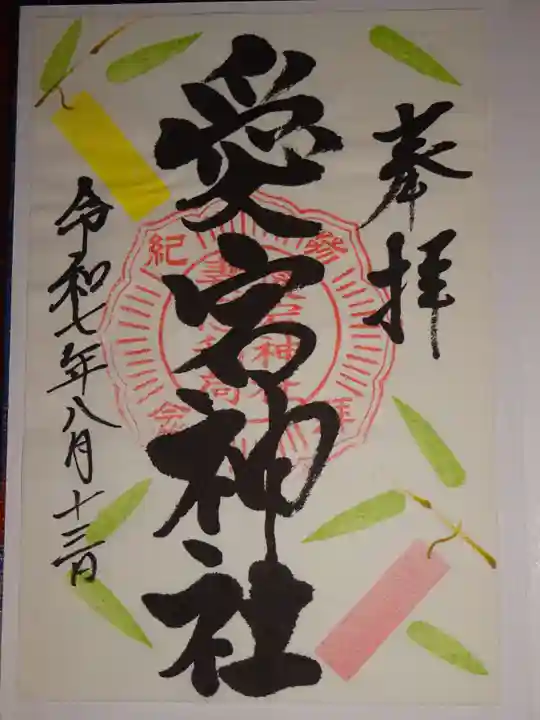 奉拝
愛宕神社
令和七年八月十三日
參
紀
念